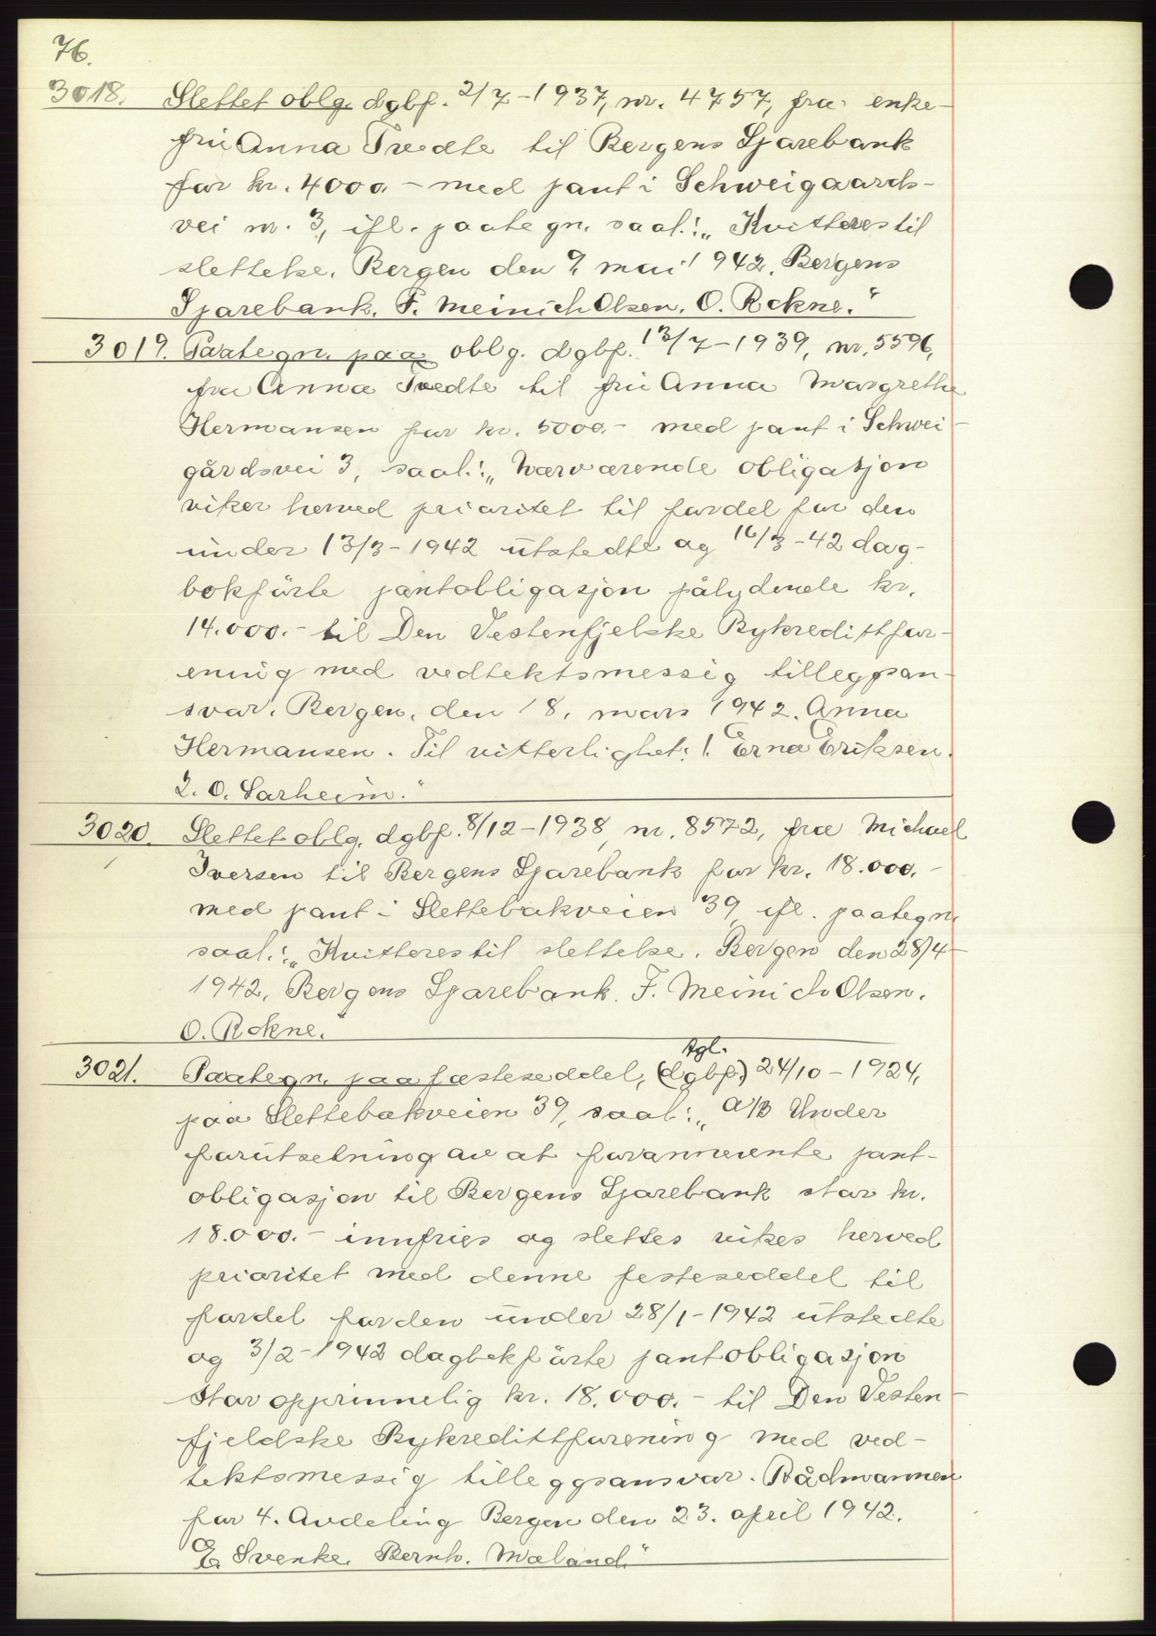 76.
3018. Slettet oblg. dgbf. 2/7-1937, nr. 4757, fra enke-
fru Anna Tvedte til Bergens Sparebank
for kr. 4000.- med pant i Schweigaards-
vei nr. 3, ifl. paategn. saal.: „Kvitteres til
slettelse. Bergen den 9. mai 1942. Bergens
Sparebank. F. Meinich Olsen. O. Rokne."
3019. Paategn. paa oblg. dgbf. 13/7-1939, nr. 5596,
fra Anna Tvedte til fru Anna Margrethe
Hermansen for kr. 5000.- med pant i Schwei-
gårdsvei 3, saal.: „Nærværende obligasjon
viker herved prioritet til fordel for den
under 13/3-1942 utstedte og 16/3-42 dag-
bokførte pantobligasjon pålydende kr.
14.000.- til Den Vestenfjelske Bykredittfor-
ening med vedtektsmessig tilleggsan-
svar. Bergen, den 18. mars 1942. Anna
Hermansen. Til vitterlighet: 1. Erna Eriksen.
2. O. Sarheim."
3020. Slettet oblg. dgbf. 8/12-1938, nr. 8572, fra Michael
Iversen til Bergens Sparebank for kr. 18.000.-
med pant i Slettebakveien 39 ifl. paategn.
saal.: „Kvitteres til slettelse. Bergen den 28/4-
1942. Bergens Sparebank. F. Meinich Olsen.
O. Rokne."
3021. Paategn. paa festeseddel, (dgbf.) tgl. 24/10-1924,
paa Slettebakveien 39, saal.: „A/B Under
forutsetning av at forannevnte pant-
obligasjon til Bergens Sparebank stor kr.
18.000.- innfries og slettes vikes herved
prioritet med denne festeseddel til
fordel for den under 28/1-1942 utstedte
og 3/2-1942 dagbokførte pantobligasjon
stor opprinnelig kr. 18.000.- til Den Vesten-
fjeldske Bykredittforening med ved-
tektsmessig tilleggsansvar. Rådmannen
for 4. Avdeling Bergen den 23. april 1942.
E. Svenke. Bernh. Mæland."